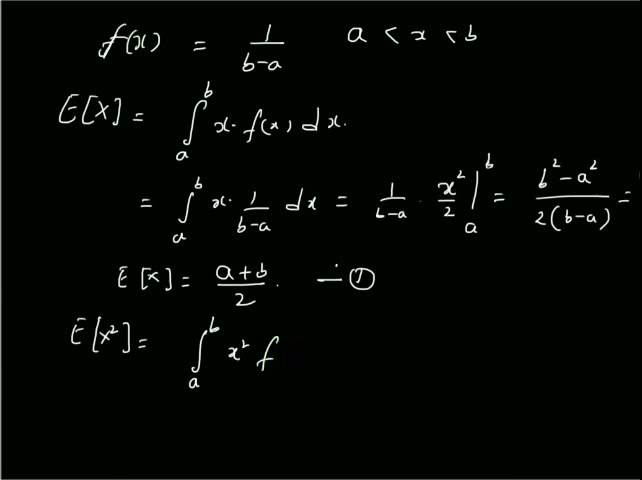 f(x) = 1/(b-a)   a < x < b
E[X] = ∫_a^b x. f(x) dx.
= ∫_a^b x. 1/(b-a) dx = 1/(b-a) . x²/2 |_a^b = (b²-a²)/(2(b-a)) =
E[x] = (a+b)/2 . — ①
E[x²] = ∫_a^b x² f